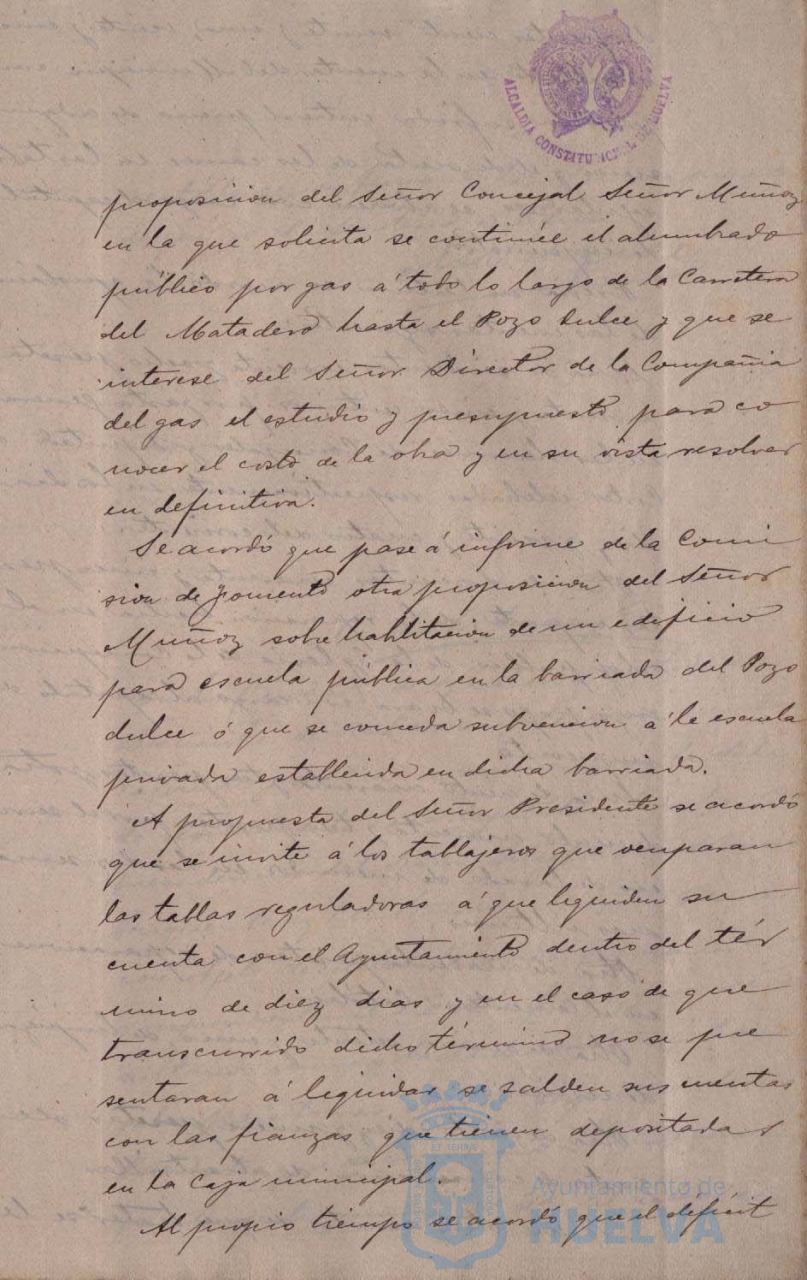 ALCALDIA CONSTITUCIONAL DE HUELVA
proposicion del Señor Concejal Señor Muñoz
en la que solicita se continúe el alumbrado
público por gas á todo lo largo de la Carretera
del Matadero hasta el Pozo dulce y que se
interese del Señor Director de la Compañia
del gas el estudio y presupuesto para co
nocer el costo de la obra y en su vista resolver
en definitiva.
Se acordó que pase á informe de la Comi
sion de Fomento otra proposicion del Señor
Muñoz sobre habilitacion de un edificio
para escuela pública en la barriada del Pozo
dulce ó que se conceda subvencion á la escuela
privada establecida en dicha barriada.
A propuesta del Señor Presidente se acordó
que se invite á los tablajeros que ocuparan
las tablas reguladoras á que liquiden su
cuenta con el Ayuntamiento dentro del tér
mino de diez dias y en el caso de que
transcurrido dicho término no se pre
sentaran á liquidar se salden sus cuentas
con las fianzas que tienen depositadas
en la caja municipal.
Al propio tiempo se acordó que el déficit
Ayuntamiento de
HUELVA